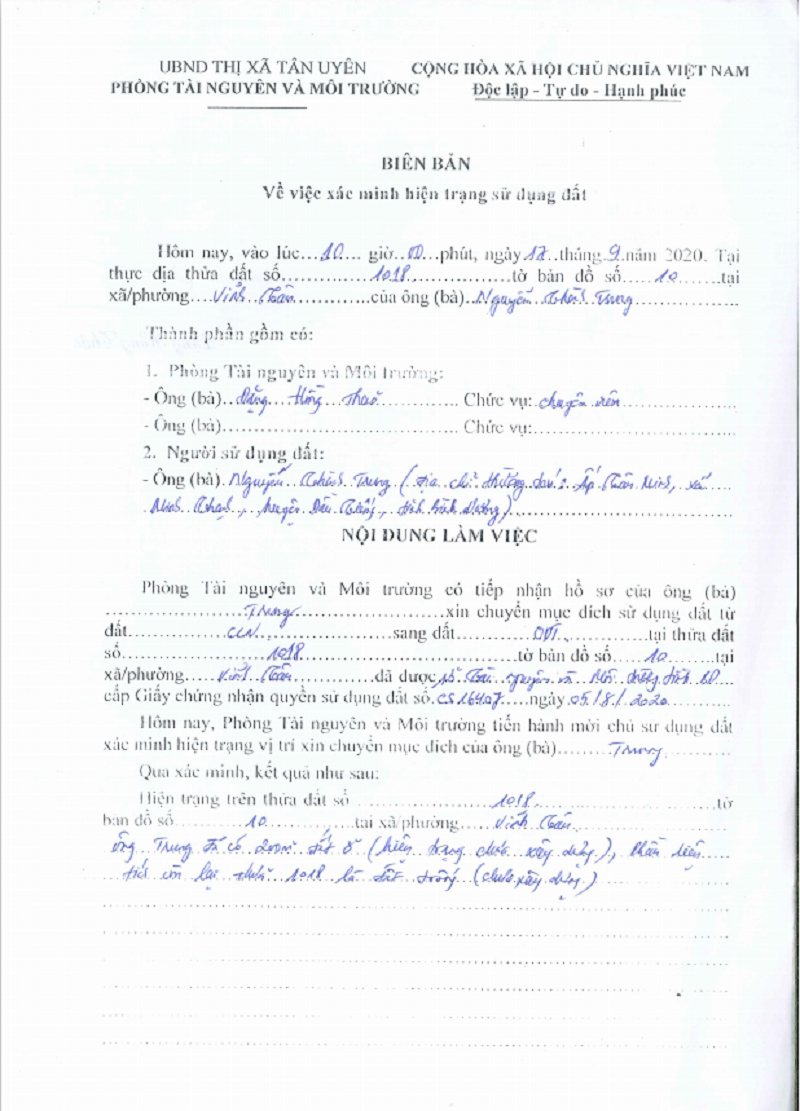 UBND THỊ XÃ TÂN UYÊN
PHÒNG TÀI NGUYÊN VÀ MÔI TRƯỜNG
CỘNG HÒA XÃ HỘI CHỦ NGHĨA VIỆT NAM
Độc lập - Tự do - Hạnh phúc
BIÊN BẢN
Về việc xác minh hiện trạng sử dụng đất
Hôm nay, vào lúc...10... giờ..00...phút, ngày 17..tháng.9.năm 2020. Tại
thực địa thửa đất số...1018...tờ bản đồ số...10...tại
xã/phường...Vĩnh Tân...của ông (bà)..Nguyễn Thành Trung...
Thành phần gồm có:
1. Phòng Tài nguyên và Môi trường:
- Ông (bà)..Đặng Hồng Thao... Chức vụ: chuyên viên...
- Ông (bà)... Chức vụ:...
2. Người sử dụng đất:
- Ông (bà). Nguyễn Thành Trung (địa chỉ thường trú: Ấp Tân Minh, xã
Minh Thạnh, huyện Dầu Tiếng, tỉnh Bình Dương)...
NỘI DUNG LÀM VIỆC
Phòng Tài nguyên và Môi trường có tiếp nhận hồ sơ của ông (bà)
...Trung...xin chuyển mục đích sử dụng đất từ
đất...CLN...sang đất...ODT...tại thửa đất
số...1018...tờ bản đồ số...10...tại
xã/phường...Vĩnh Tân...đã được sở Tài nguyên và Môi trường tỉnh BD...
cấp Giấy chứng nhận quyền sử dụng đất số.CS16407...ngày.05/8/2020
Hôm nay, Phòng Tài nguyên và Môi trường tiến hành mời chủ sử dụng đất
xác minh hiện trạng vị trí xin chuyển mục đích của ông (bà)...Trung...
Qua xác minh, kết quả như sau:
Hiện trạng trên thửa đất số...1018...tờ
bản đồ số...10...tại xã/phường...Vĩnh Tân...
ông Trung đã có 200m² đất ở (hiện trạng chưa xây dựng), phần diện
tích còn lại thửa 1018 là đất trống (chưa xây dựng)